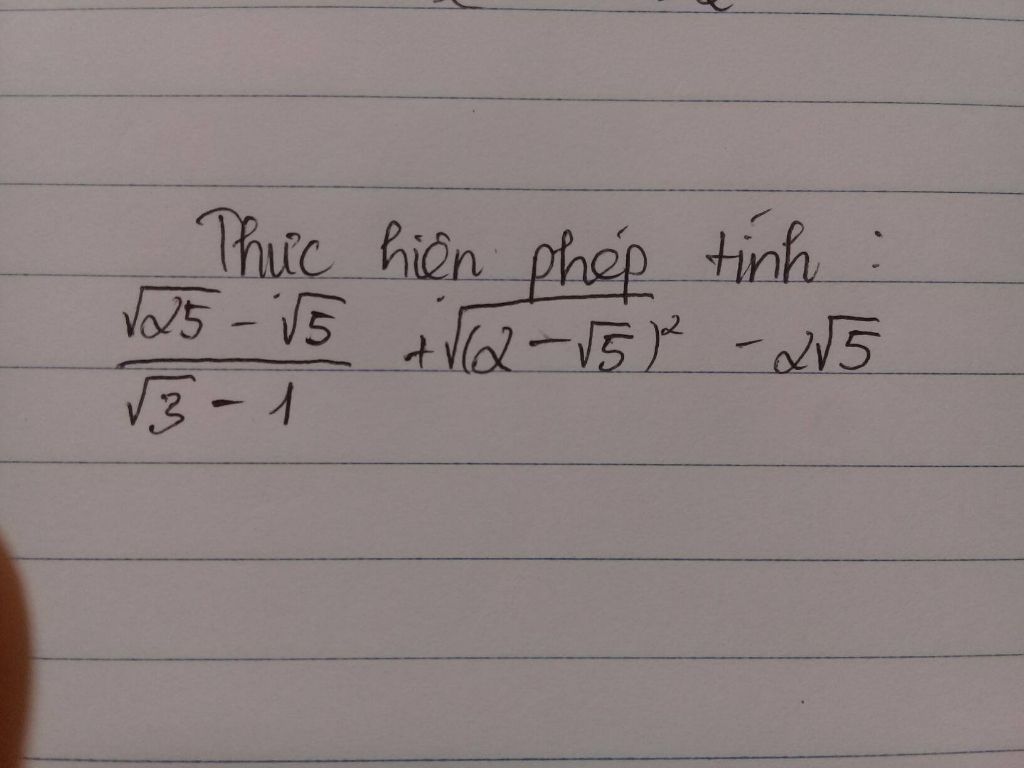 Thực hiện phép tính :
\frac{\sqrt{25} - \sqrt{5}}{\sqrt{3} - 1} + \sqrt{(2 - \sqrt{5})^2} - 2\sqrt{5}